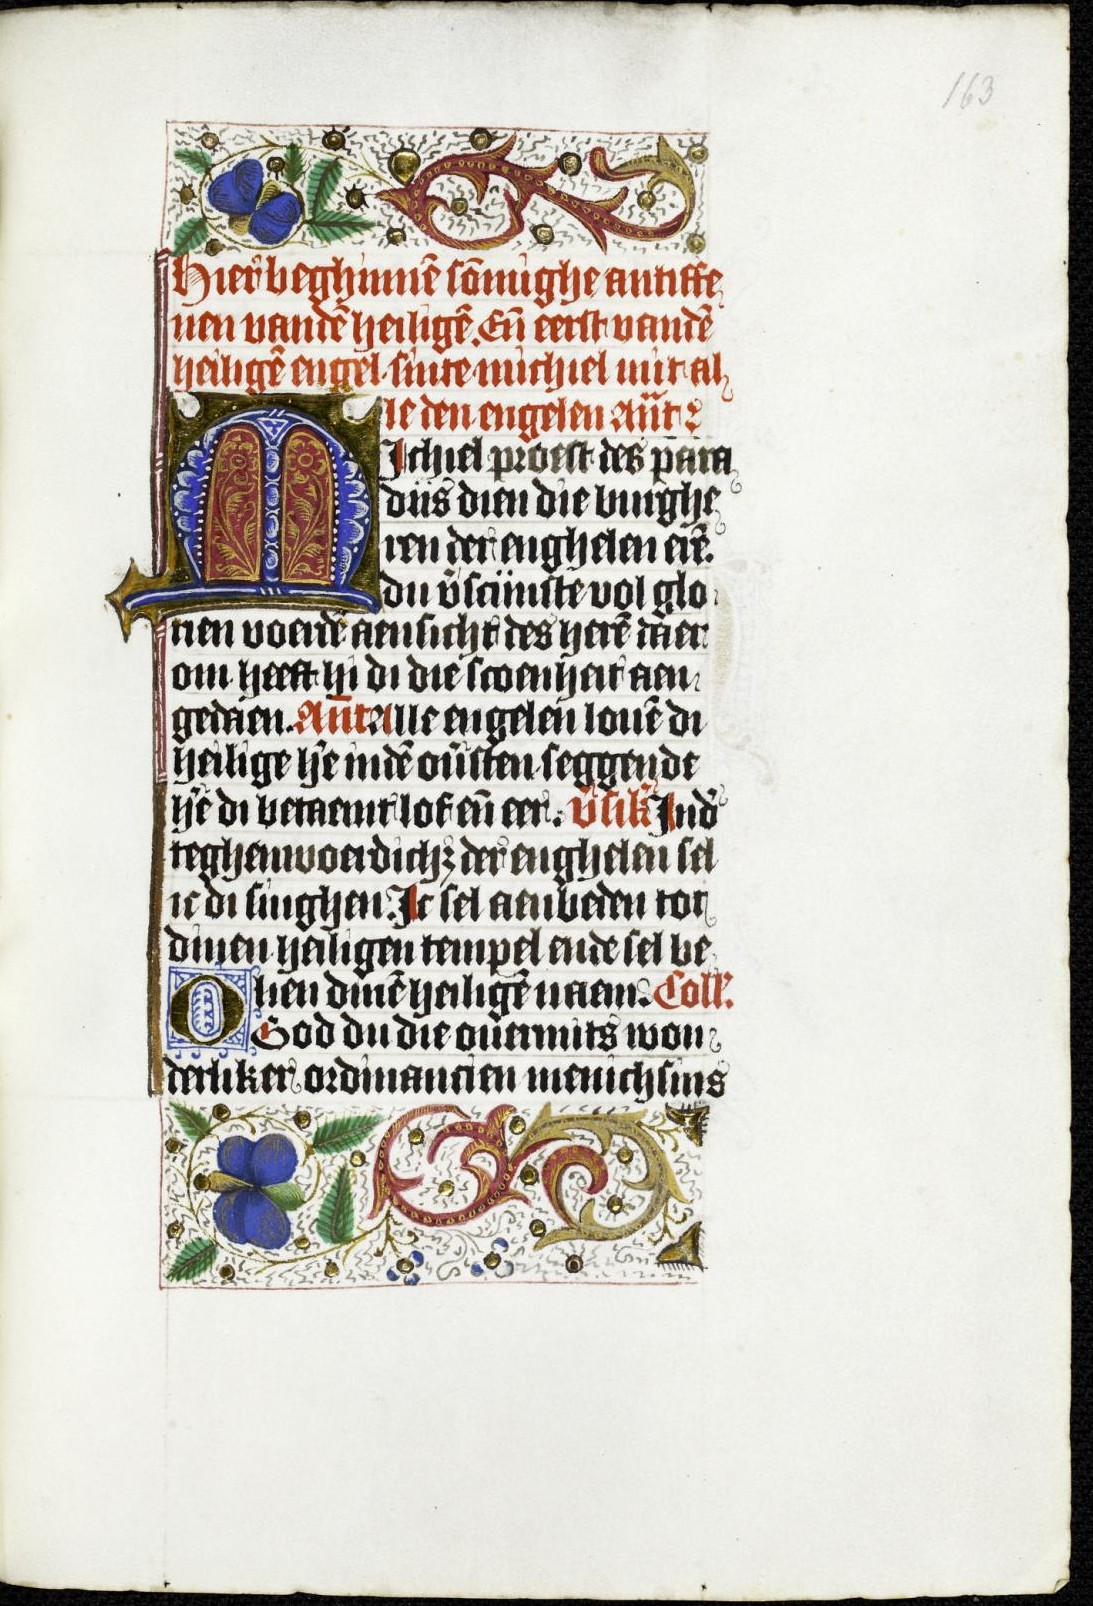 163
Hier beghinnē sōmighe antiffe
nen vandē heiligē. Eñ eerst vandē
heiligē engel sinte michiel mit al
le den engelen Añt
Michiel proest des para
diis dien die burghe
ren der enghelen erē.
du v̄sciinste vol glo
rien voerdē aensicht des herē daer
om heeft hi di die scoenheit aen
gedaen. Añt Alle engelen louē di
heilige hē̄ indē ouersten seggende
hē̄ di betaemt lof eñ eer. v̄sik̄ Ind̄
teghenwoerdich der enghelen sel
ic di singhen. Ic sel aenbeden tot
dinen heiligen tempel ende sel be
lien dinē heiligē naem. Coll̄.
O God du die ouermits won
derliker ordinancien menichsins